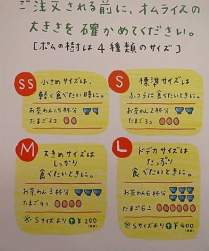 ご注文される前に、オムライスの
大きさを確かめてください。
[ポムの樹は4種類のサイズ]
SS 小さめサイズは、
軽く食べたい時に。
お茶わん
たまご
S 標準サイズは、
ふつうに食べたいときに。
お茶わん
たまご
M 大きめサイズは
しっかり
食べたいときに。
お茶わん
たまご
※Sサイズより ¥200
L ドデカサイズは
たっぷり
食べたいときに。
お茶わん
たまご
※Sサイズより ¥400